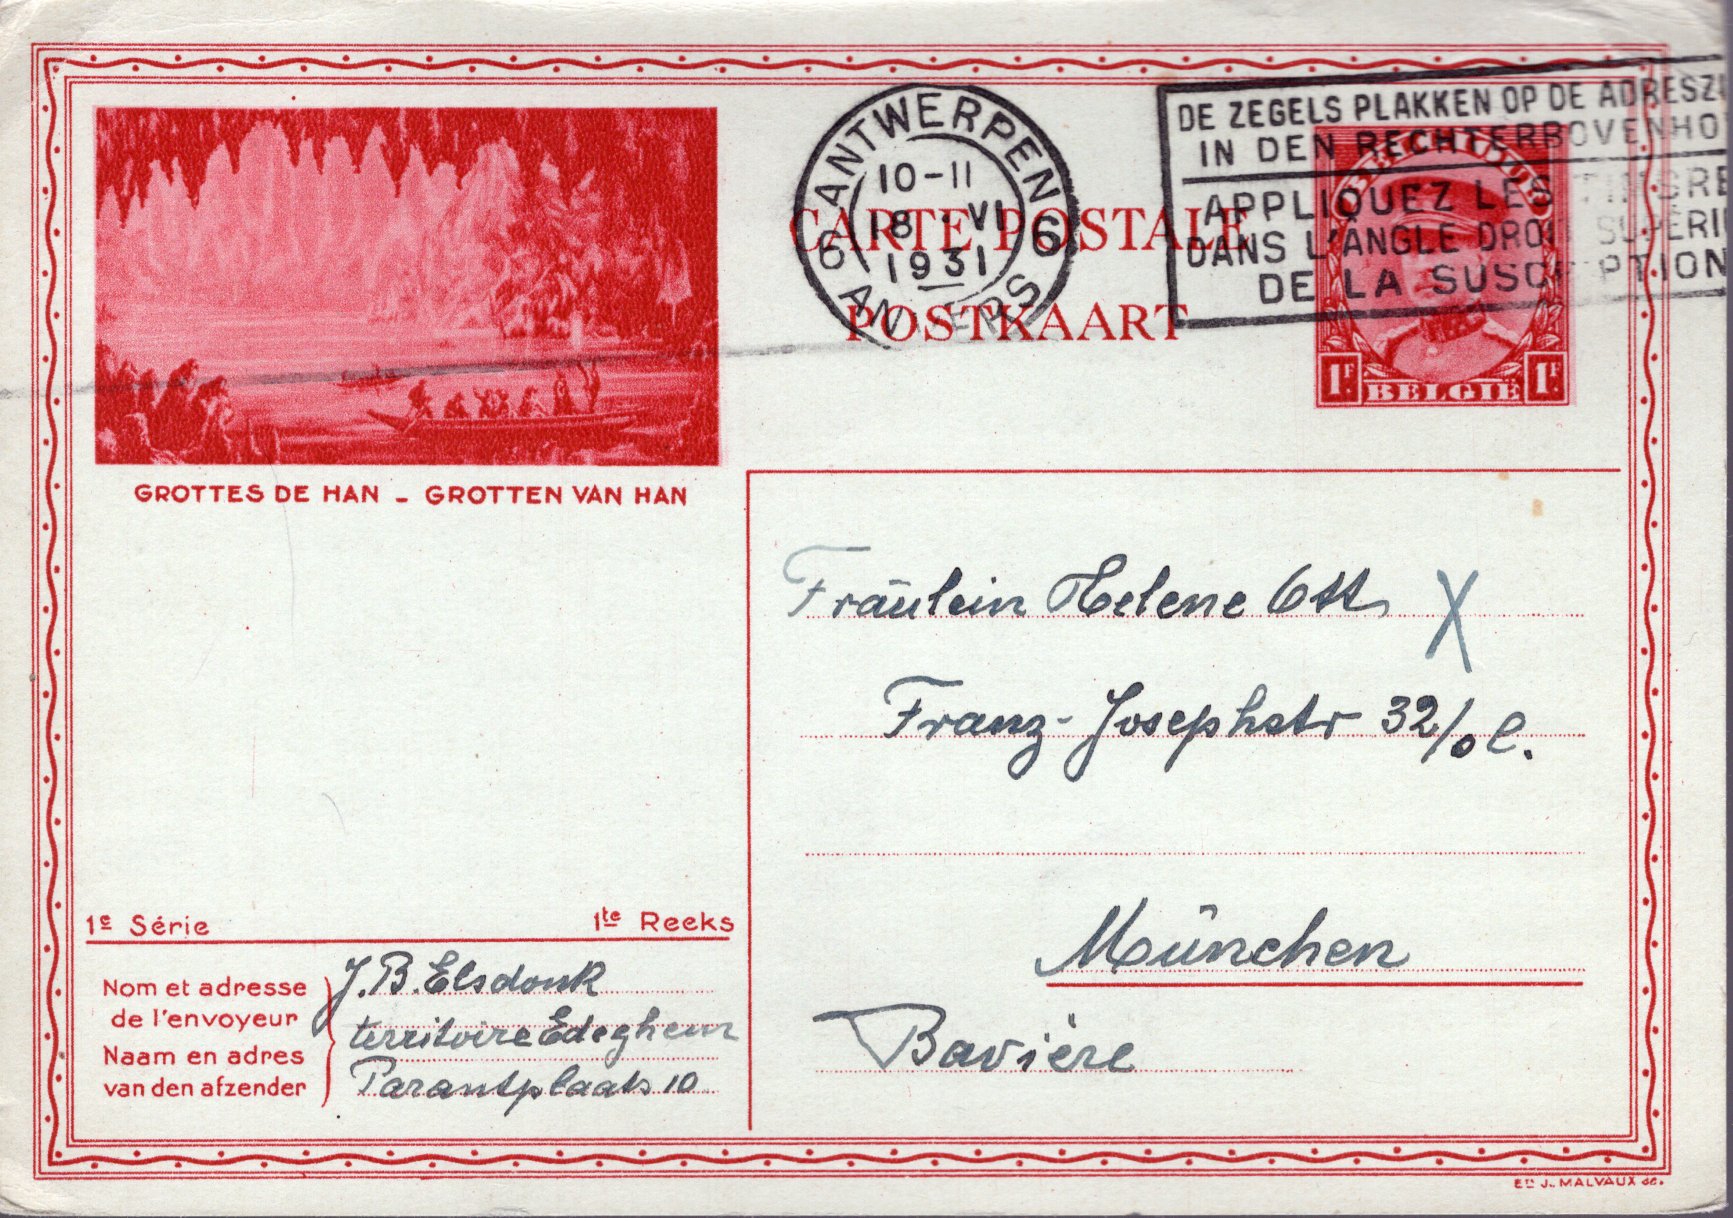 ANTWERPEN
10-11
18 VI
1931
6 6
AN ERS
DE ZEGELS PLAKKEN OP DE ADRESZ
IN DEN RECHTERBOVENHO
APPLIQUEZ LES TIMBRE
DANS L'ANGLE DROIT SUPÉRI
DE LA SUSCRIPTION
CARTE POSTALE
POSTKAART
1F BELGIË 1F
GROTTES DE HAN - GROTTEN VAN HAN
Fräulein Helene Ott X
Franz-Josephstr 32/0 l.
München
Bavière
1e Série 1te Reeks
Nom et adresse
de l'envoyeur
Naam en adres
van den afzender
J.B. Elsdonk
territoire Edeghem
Parantplaats 10
Ets J. MALVAUX